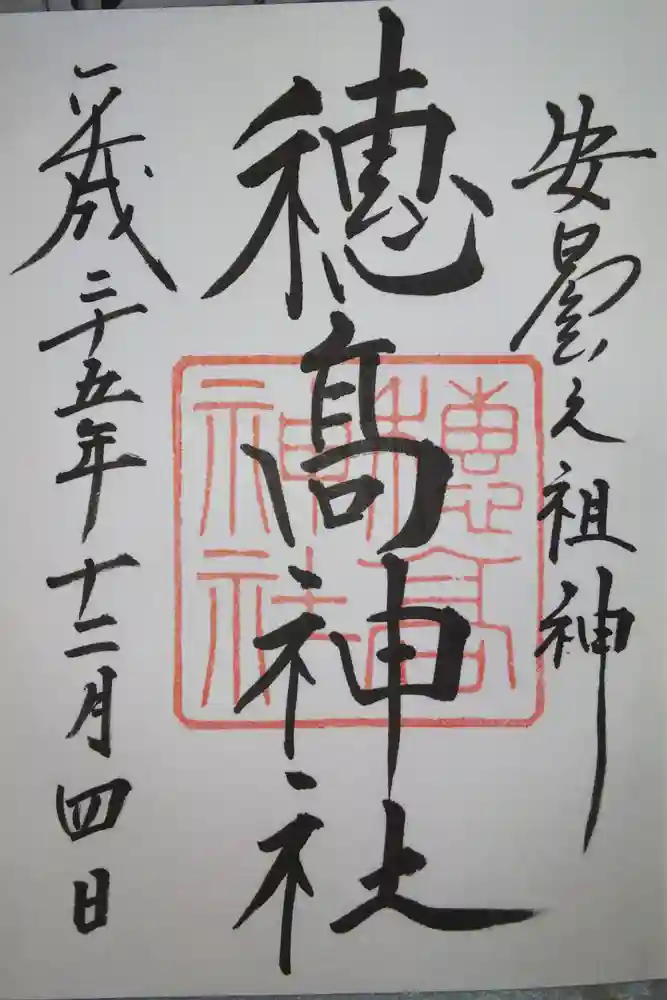 安曇之祖神
穂髙神社
穂高神社
平成二十五年十二月四日